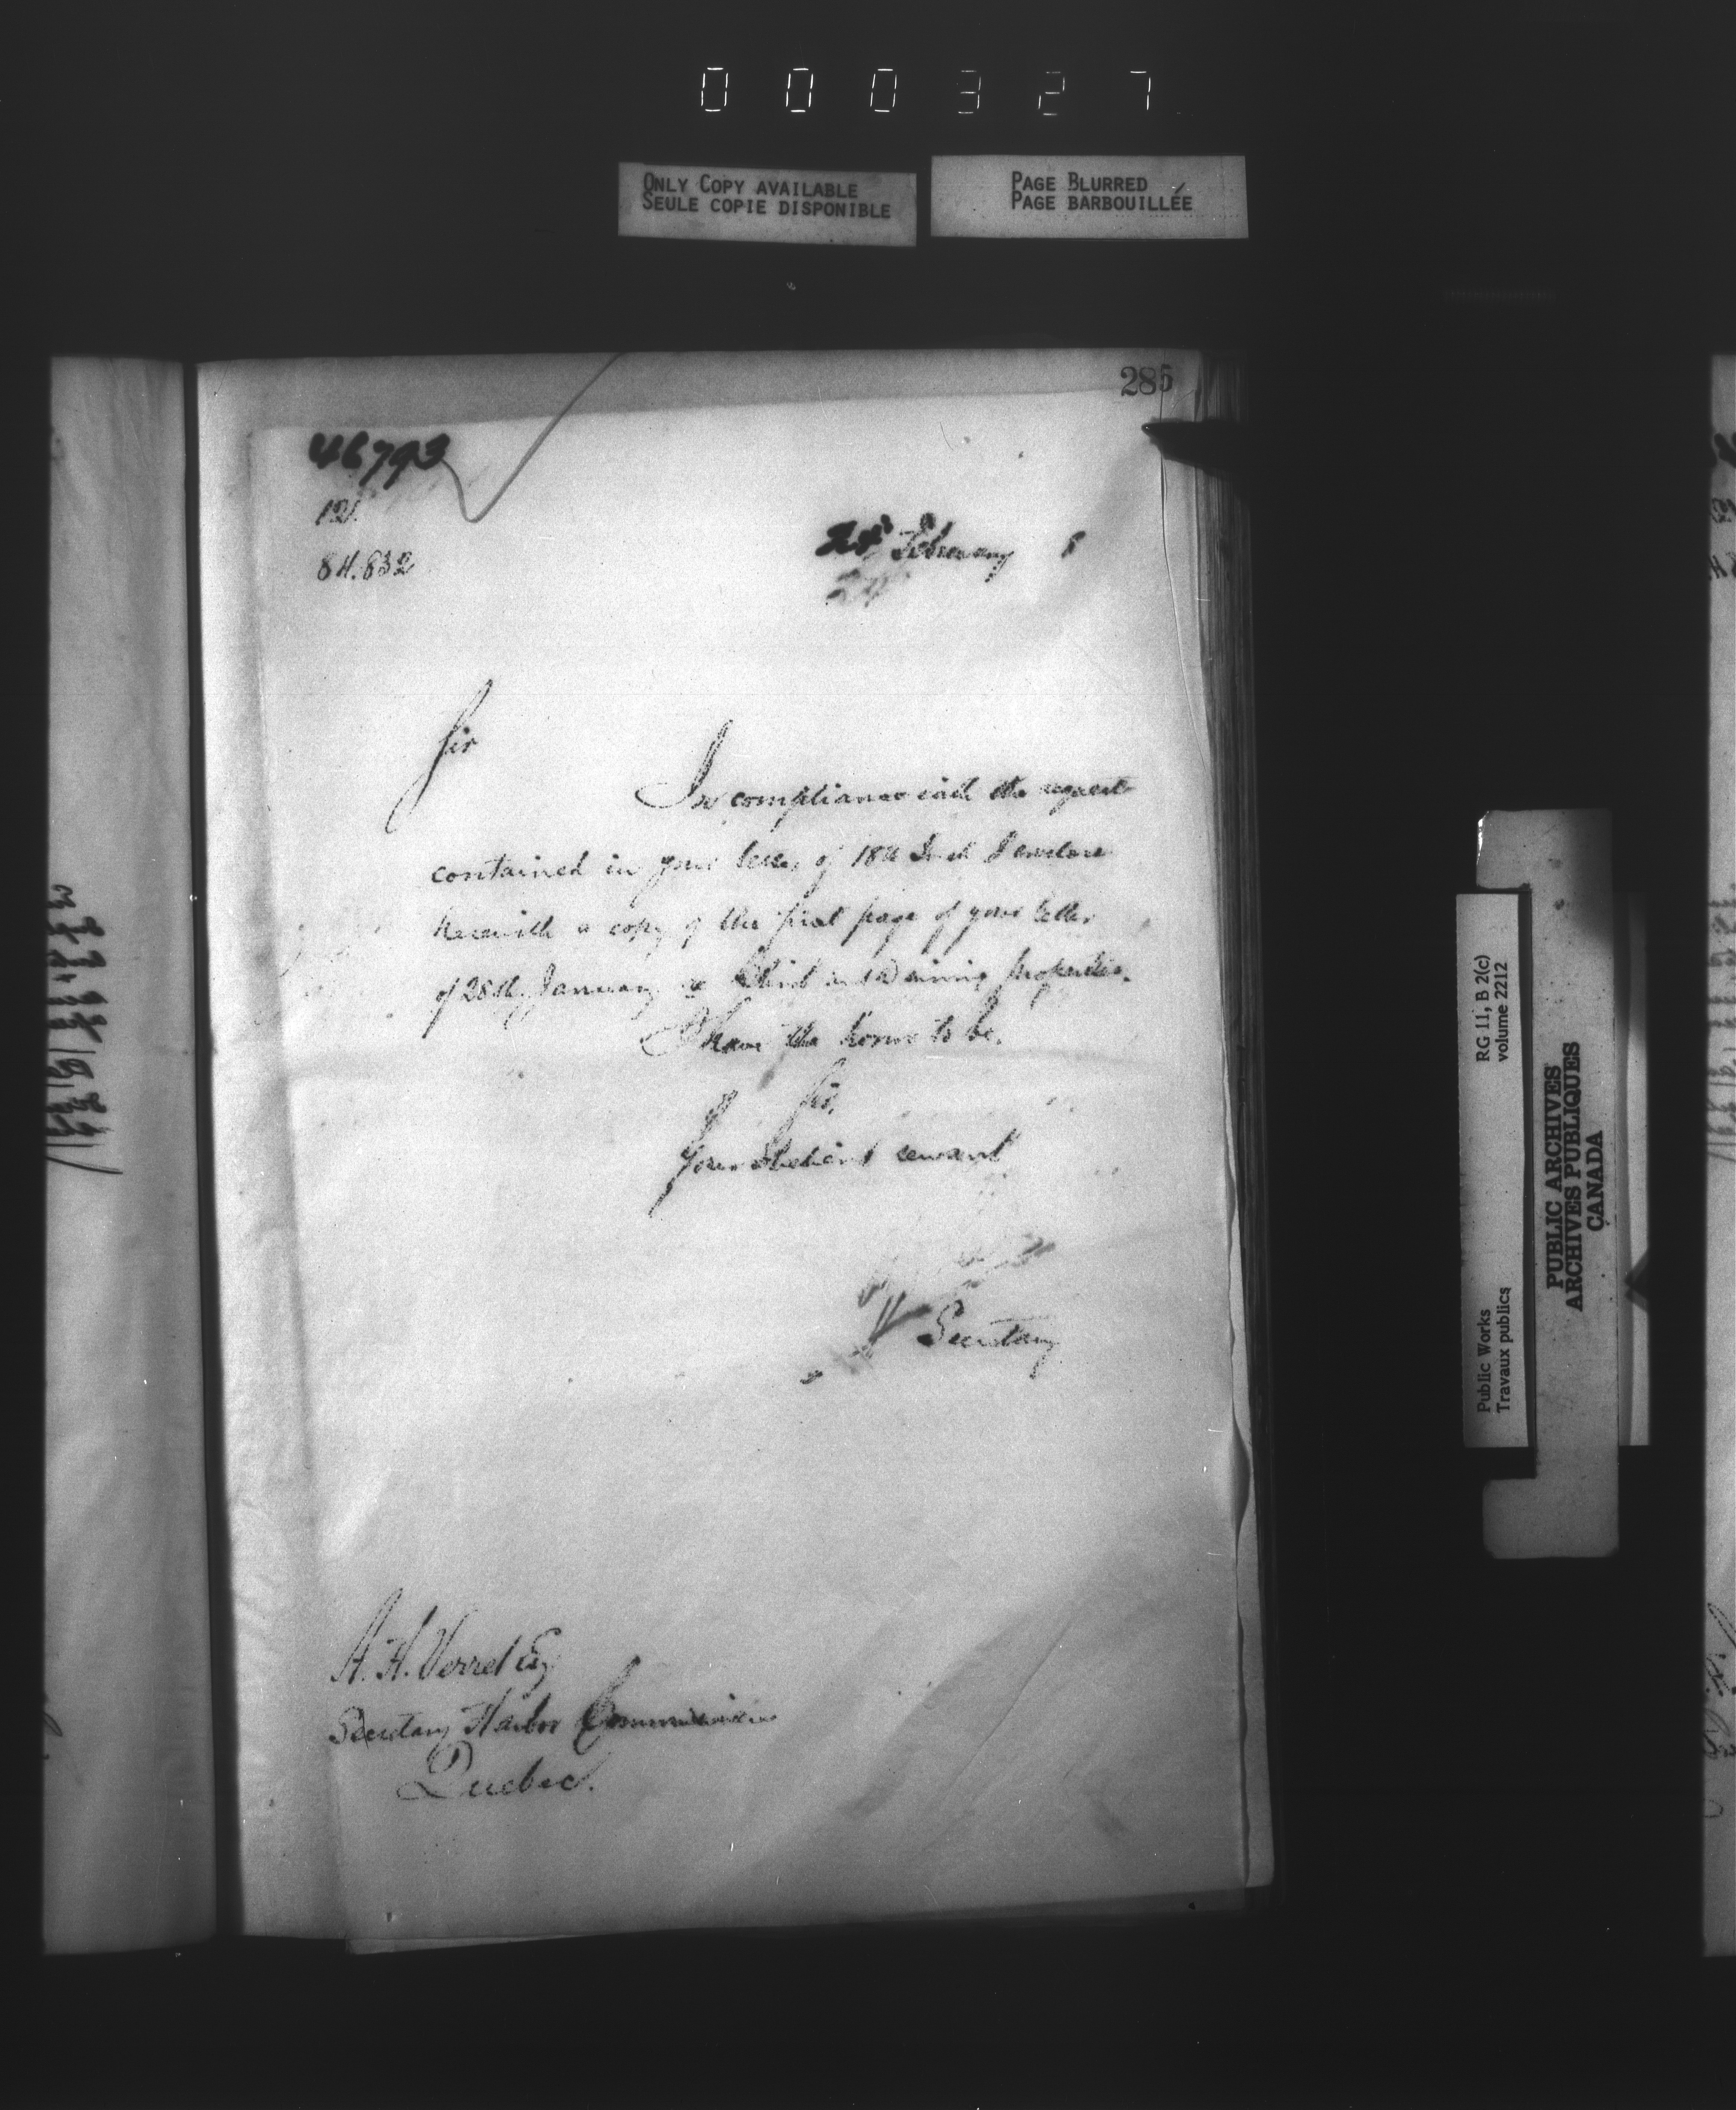 000327
ONLY COPY AVAILABLE
SEULE COPIE DISPONIBLE
PAGE BLURRED
PAGE BARBOUILLÉE
285
46793
84.832
February
Sir
In compliance with the request
contained in your letter of 18th Inst I enclose
herewith a copy of the first page of your letter
of 28th January re and properties.
I have the honor to be,
Sir,
Your obedient servant
Secretary
A. H. Verret Esq
Secretary Harbor Commissioners
Quebec.
RG 11, B 2(c)
volume 2212
Public Works
Travaux publics
PUBLIC ARCHIVES
ARCHIVES PUBLIQUES
CANADA